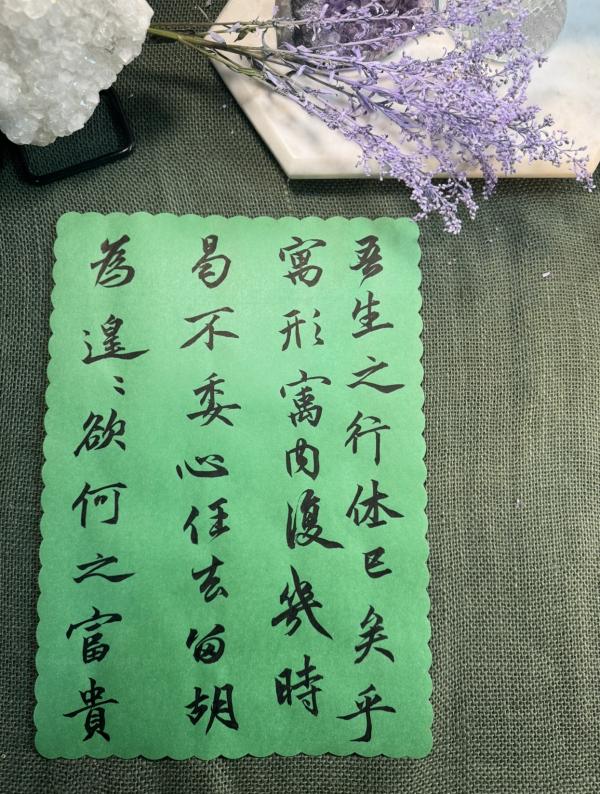 吾生之行休已矣乎
寓形寓内復幾時
曷不委心任去留胡
為遑〻欲何之富貴